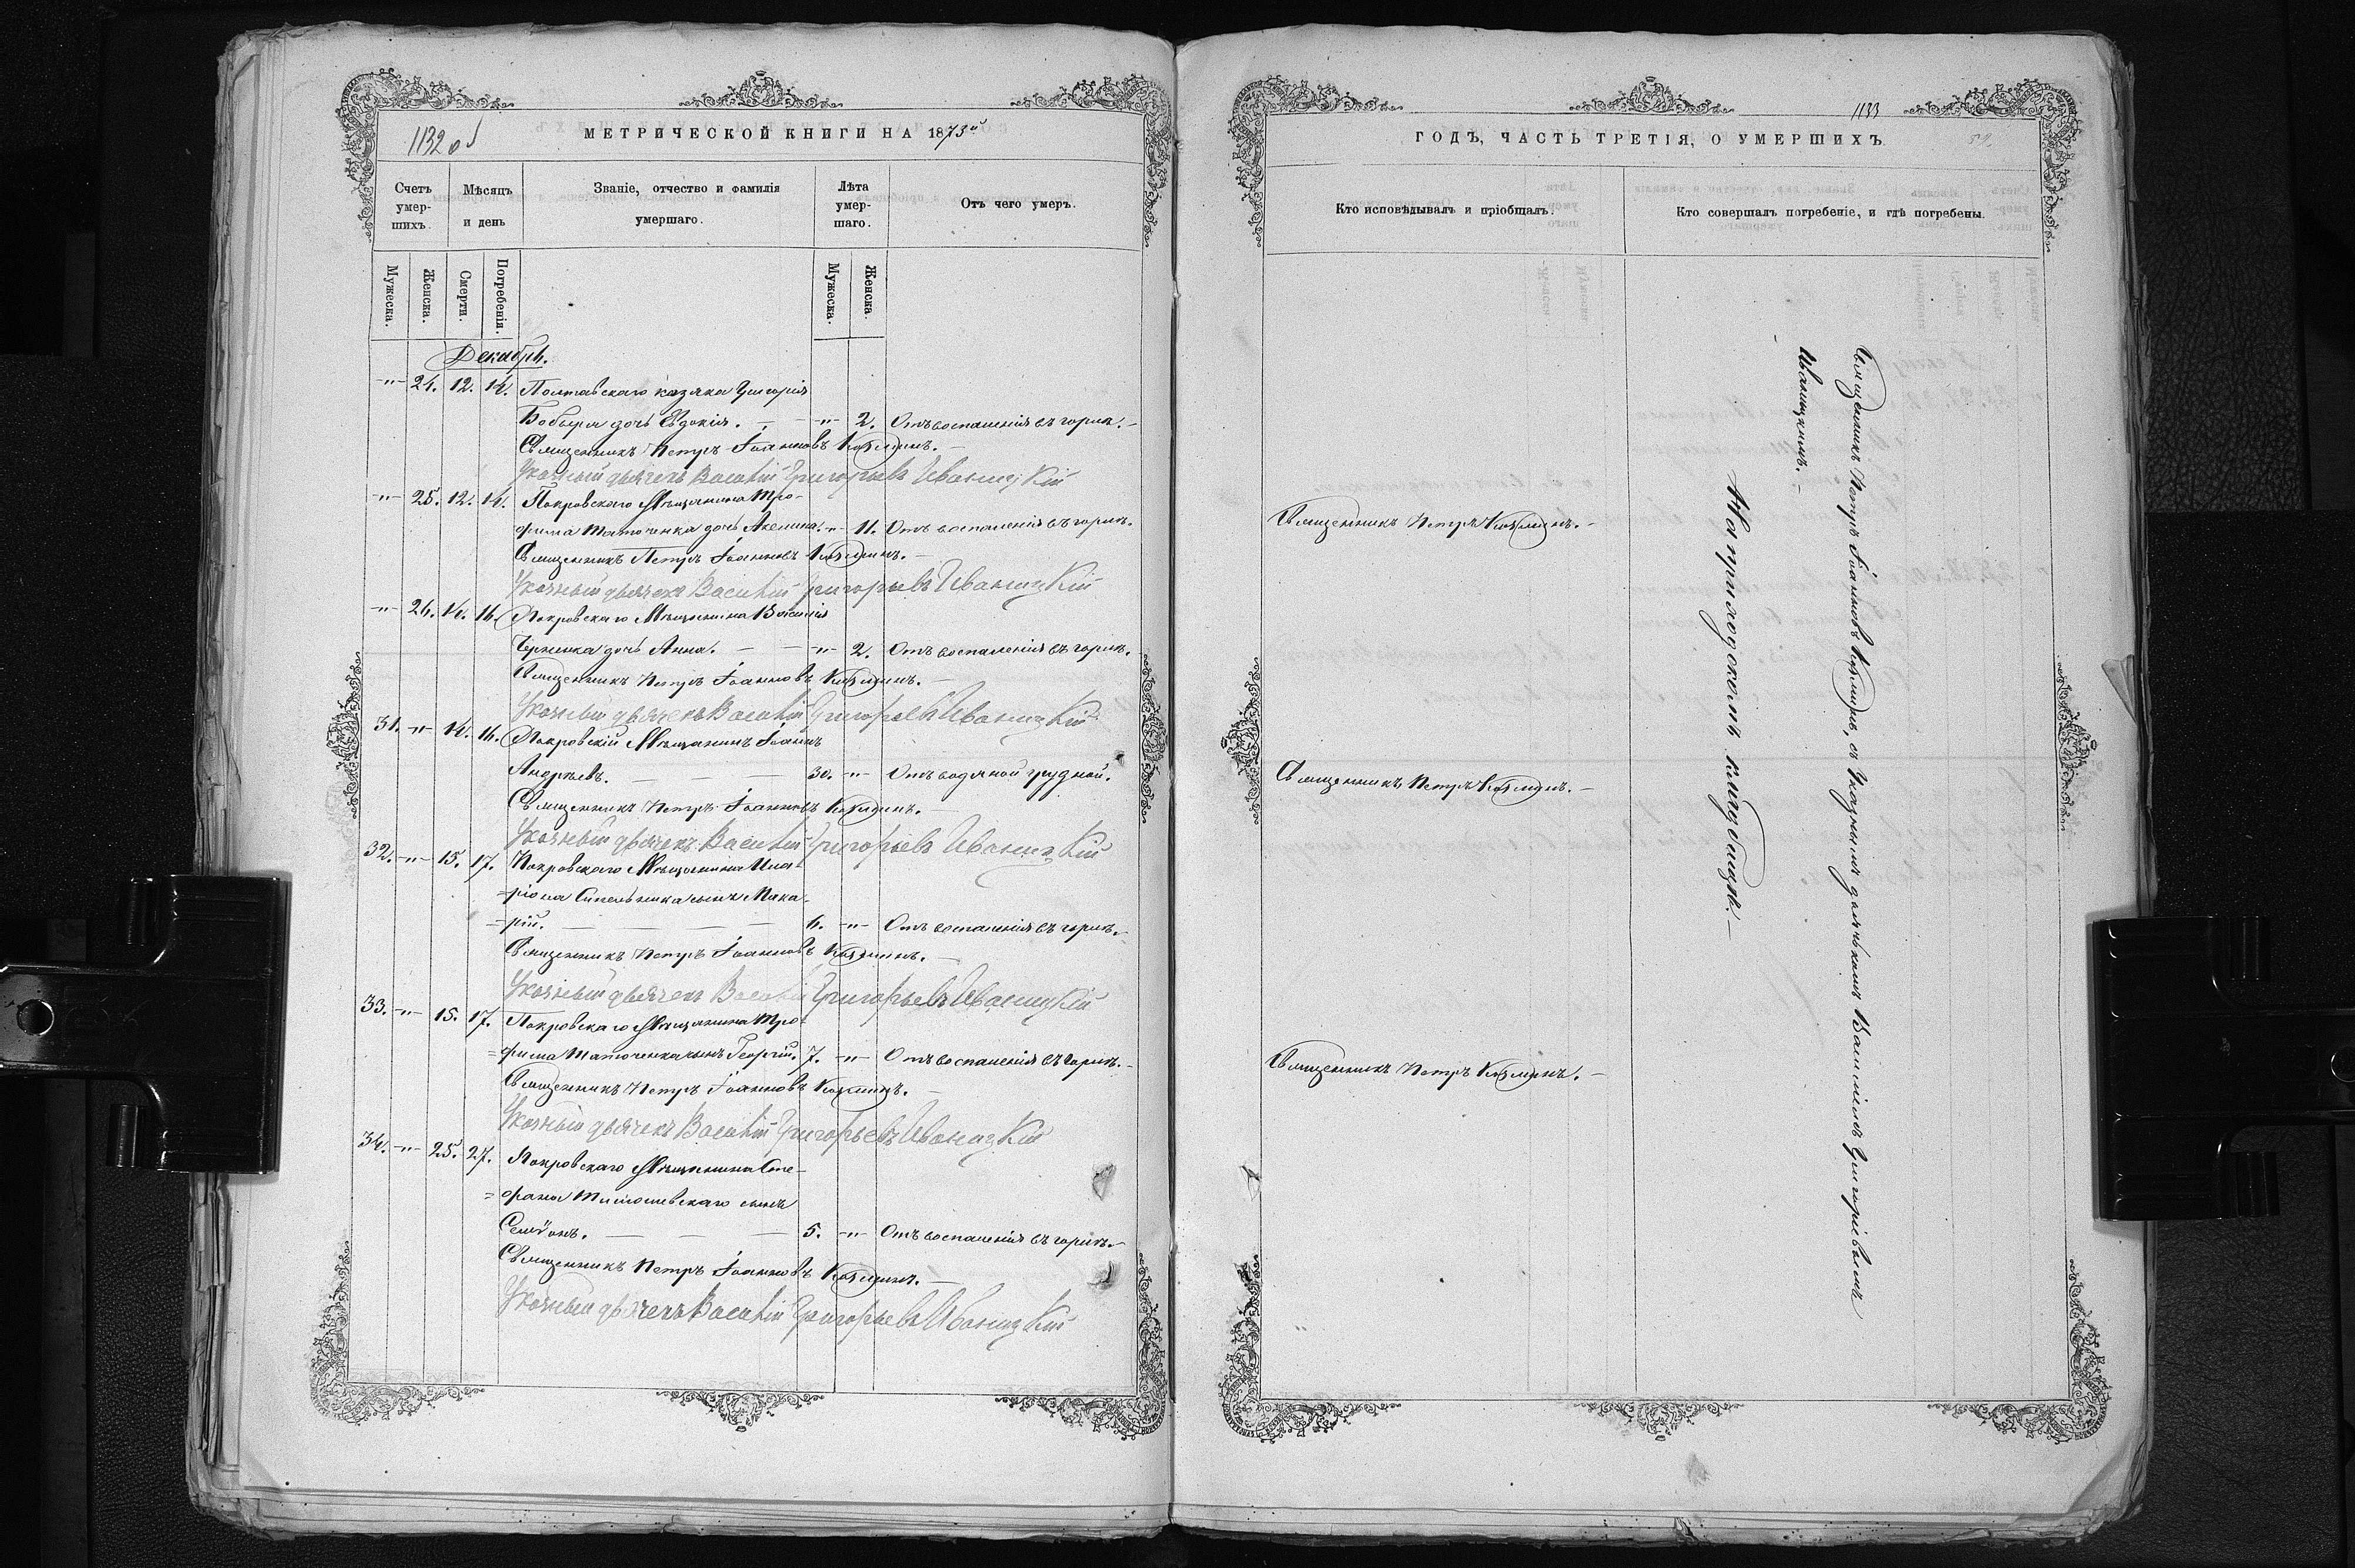 1132 об
МЕТРИЧЕСКОЙ КНИГИ НА 1873й
Счетъ умер- шихъ.
Мѣсяцъ и день
Званіе, отчество и фамилія умершаго.
Лѣта умер- шаго.
Отъ чего умеръ.
Мужеска.
Женска.
Смерти.
Погребенія.
Мужеска.
Женска.
Декабрь.
-"- 24. 12. 14. Полтавскаго казака Григорія
Бобыря дочь Евдокія. — -"- 2. Отъ воспаленія въ горлѣ.-
Священникъ Петръ Іоанновъ Козминъ.-
Указный дьячекъ Василій Григорьевъ Иваницкій
-"- 25. 12. 14. Покровскаго Мѣщанина Тро-
фима Таточенка дочь Акелина. -"- 11. Отъ воспаленія въ горлѣ.
Священникъ Петръ Іоанновъ Козминъ.-
Указный дьячекъ Василій Григорьевъ Иваницкій
-"- 26. 14. 16. Покровскаго Мѣщанина Василія
дочь Анна. — — -"- 2. Отъ воспаленія въ горлѣ.
Священникъ Петръ Іоанновъ Козминъ.-
Указный дьячекъ Василій Григорьевъ Иваницкій
31. -"- 14. 16. Покровскій Мѣщанинъ Іоаннъ
Андреевъ. — — — 30. -"- Отъ водяной грудной.
Священникъ Петръ Іоанновъ Козминъ.-
Указный дьячекъ Василій Григорьевъ Иваницкій
32. -"- 15. 17. Покровскаго Мѣщанина Ила-
=ріона Синельника сынъ Мака-
=рій. — — — — 6. -"- Отъ воспаленія въ горлѣ.-
Священникъ Петръ Іоанновъ Козминъ.-
Указный дьячекъ Василій Григорьевъ Иваницкій
33. -"- 15. 17. Покровскаго Мѣщанина Тро-
=фима Таточенка сынъ Георгій. 7. -"- Отъ воспаленія въ горлѣ.-
Священникъ Петръ Іоанновъ Козминъ.-
Указный дьячекъ Василій Григорьевъ Иваницкій
34. -"- 25. 27. Покровскаго Мѣщанина Сте-
=фана сынъ
Семіонъ. — — — 5. -"- Отъ воспаленія въ горлѣ.-
Священникъ Петръ Іоанновъ Козминъ.-
Указный дьячекъ Василій Григорьевъ Иваницкій
1133
ГОДЪ, ЧАСТЬ ТРЕТІЯ, О УМЕРШИХЪ.
Кто исповѣдывалъ и пріобщалъ.
Кто совершалъ погребеніе, и гдѣ погребены.
Священникъ Петръ Козминъ.-
Священникъ Петръ Козминъ.-
Священникъ Петръ Козминъ.-
Священникъ Петръ Іоанновъ Козминъ, съ Указнымъ дьячькомъ Василіемъ Григоріевымъ
Иваницкимъ.-
На приходскомъ кладбищѣ.-